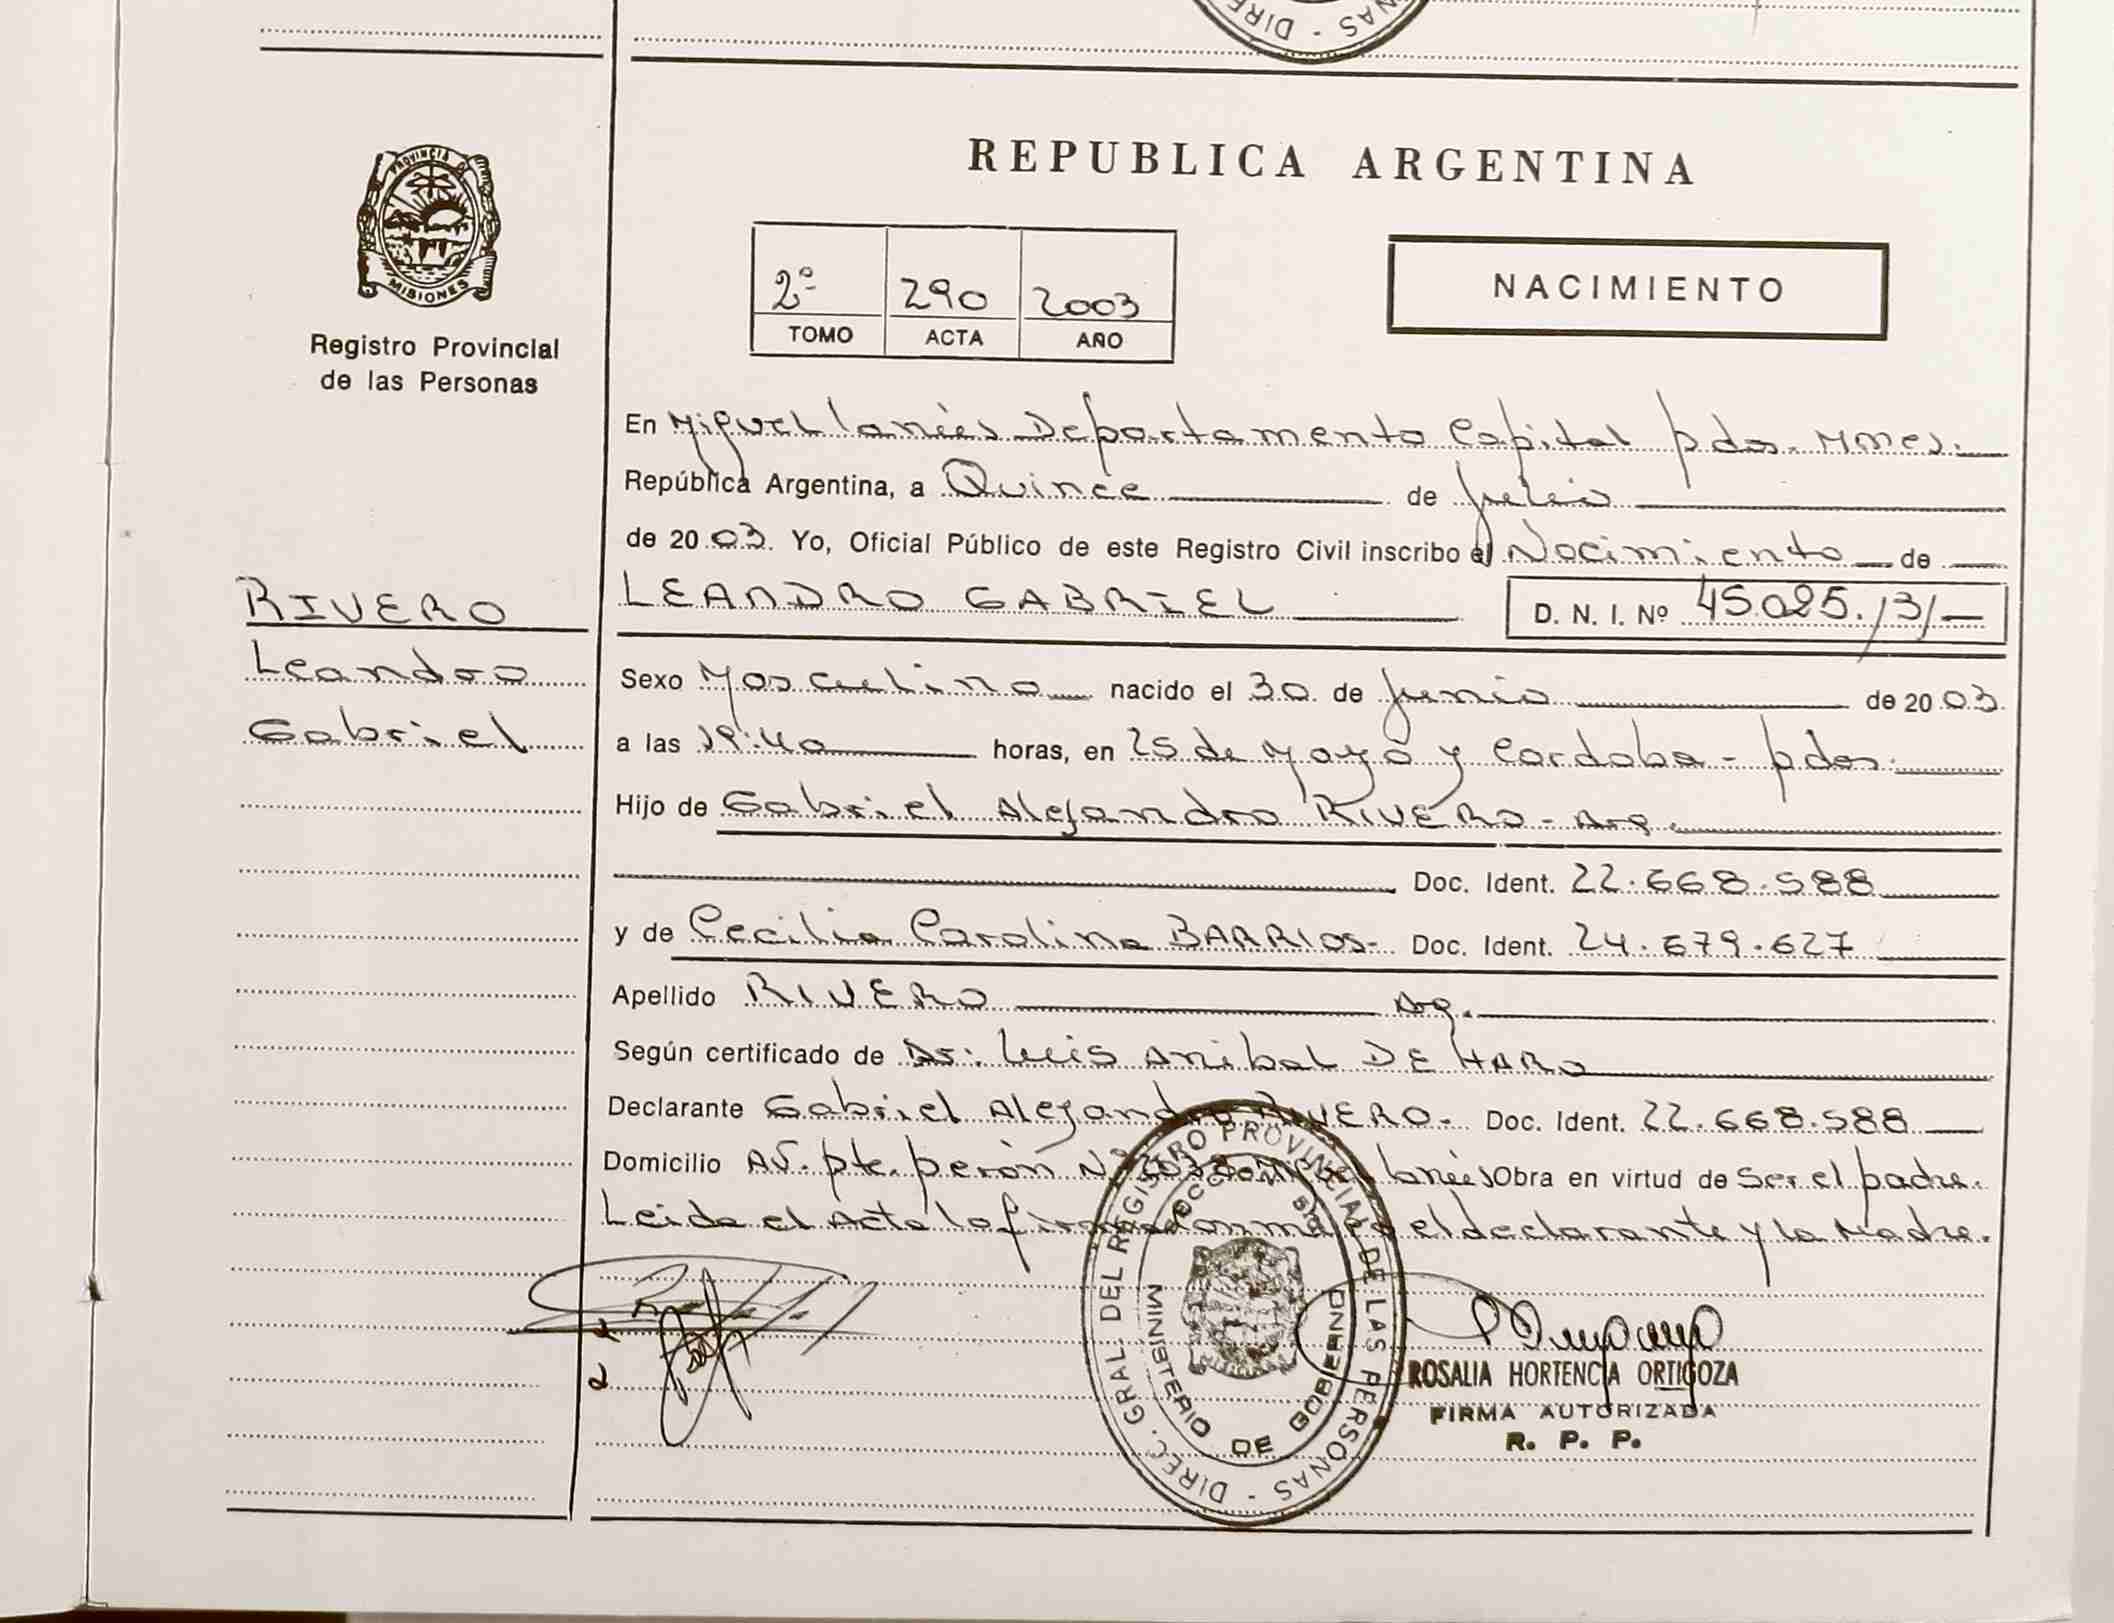 DIREC. - NAS
PROVINCIA DE
MISIONES
Registro Provincial
de las Personas
REPUBLICA ARGENTINA
2º 290 2003
TOMO ACTA AÑO
NACIMIENTO
En Miguel Lanús Departamento Capital pdas. Mnes.
República Argentina, a Quince de Julio
de 2003. Yo, Oficial Público de este Registro Civil inscribo el Nacimiento de
RIVERO
Leandro
Gabriel
LEANDRO GABRIEL D. N. I. Nº 45.025.131
Sexo Masculino nacido el 30 de Junio de 2003
a las 19:40 horas, en 25 de Mayo y Cordoba - pdas.
Hijo de Gabriel Alejandro RIVERO - Arg.
Doc. Ident. 22.668.588
y de Cecilia Carolina BARRIOS- Doc. Ident. 24.679.627
Apellido RIVERO Arg.
Según certificado de Dr: Luis Anibal DE HARO
Declarante Gabriel Alejandro RIVERO. Doc. Ident. 22.668.588
Domicilio Av. pte. perón Nº Lanús Obra en virtud de Ser el padre.
Leida el Acta la firman el declarante y la Madre.
DIREC. GRAL. DEL REGISTRO PROVINCIAL DE LAS PERSONAS -
MINISTERIO DE GOBIERNO
ROSALIA HORTENCIA ORTIGOZA
FIRMA AUTORIZADA
R. P. P.